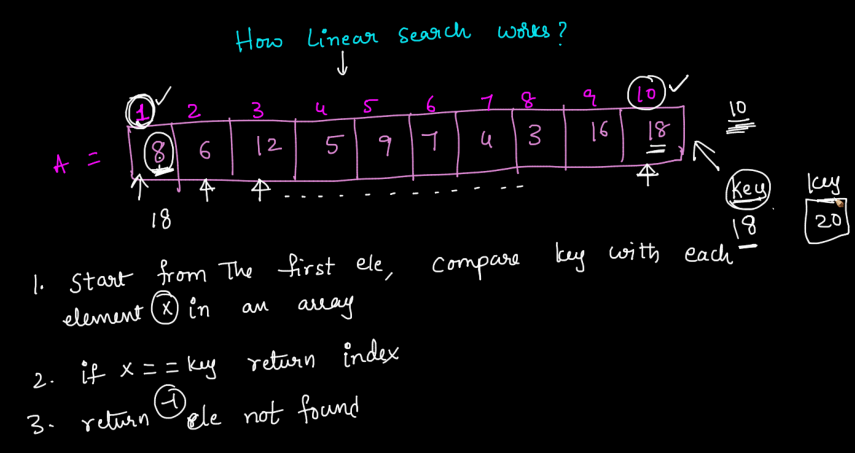 How Linear Search works?
1 2 3 4 5 6 7 8 9 10
10
A = 8 6 12 5 9 7 4 3 16 18
key key
18 18 20
1. Start from The first ele, compare key with each
element x in an array
2. if x == key return index
3. return -1 ele not found